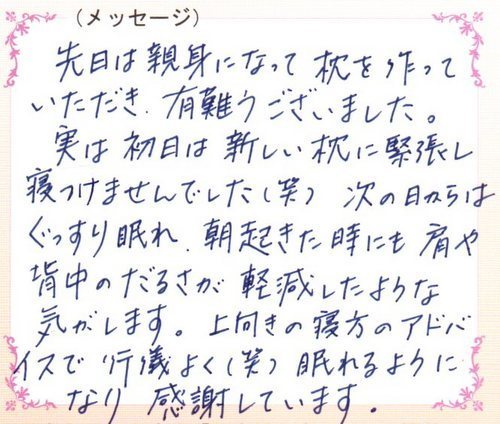 (メッセージ)
先日は親身になって枕を作って
いただき、有難うございました。
実は初日は新しい枕に緊張し
寝つけませんでした(笑) 次の日からは
ぐっすり眠れ、朝起きた時にも肩や
背中のだるさが軽減したような
気がします。上向きの寝方のアドバ
イスで行儀よく(笑)眠れるように
なり感謝しています。